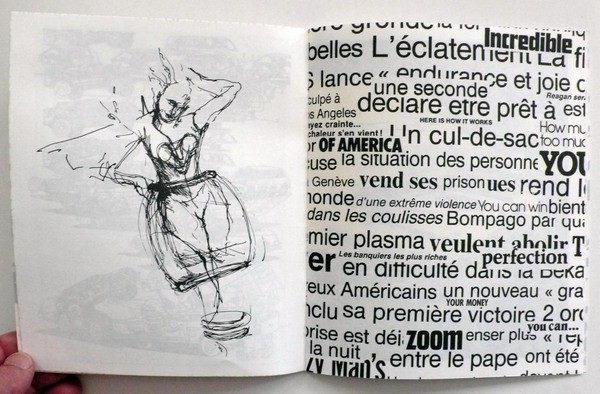 gronde la
Incredible
belles L'éclatement La fi
lance « endurance et joie d
une seconde
culpé à
déclare être prêt à est
Reagan ser
os Angeles
HERE IS HOW IT WORKS
yez crainte...
chaleur s'en vient! Un cul-de-sac
How mu
too muc
or OF AMERICA
cuse la situation des personne YOU
Genève vend ses prisonues rend l
monde d'une extrême violence You can win bient
dans les coulisses Bompago par qua
mier plasma veulent abolir T
er Les banquiers les plus riches perfection
en difficulté dans la
reux Américains un nouveau « gra
YOUR MONEY
nclu sa première victoire 2 ord
you can...
rise est déjà zoom enser plus «
la nuit
zy Man's entre le pape ont été